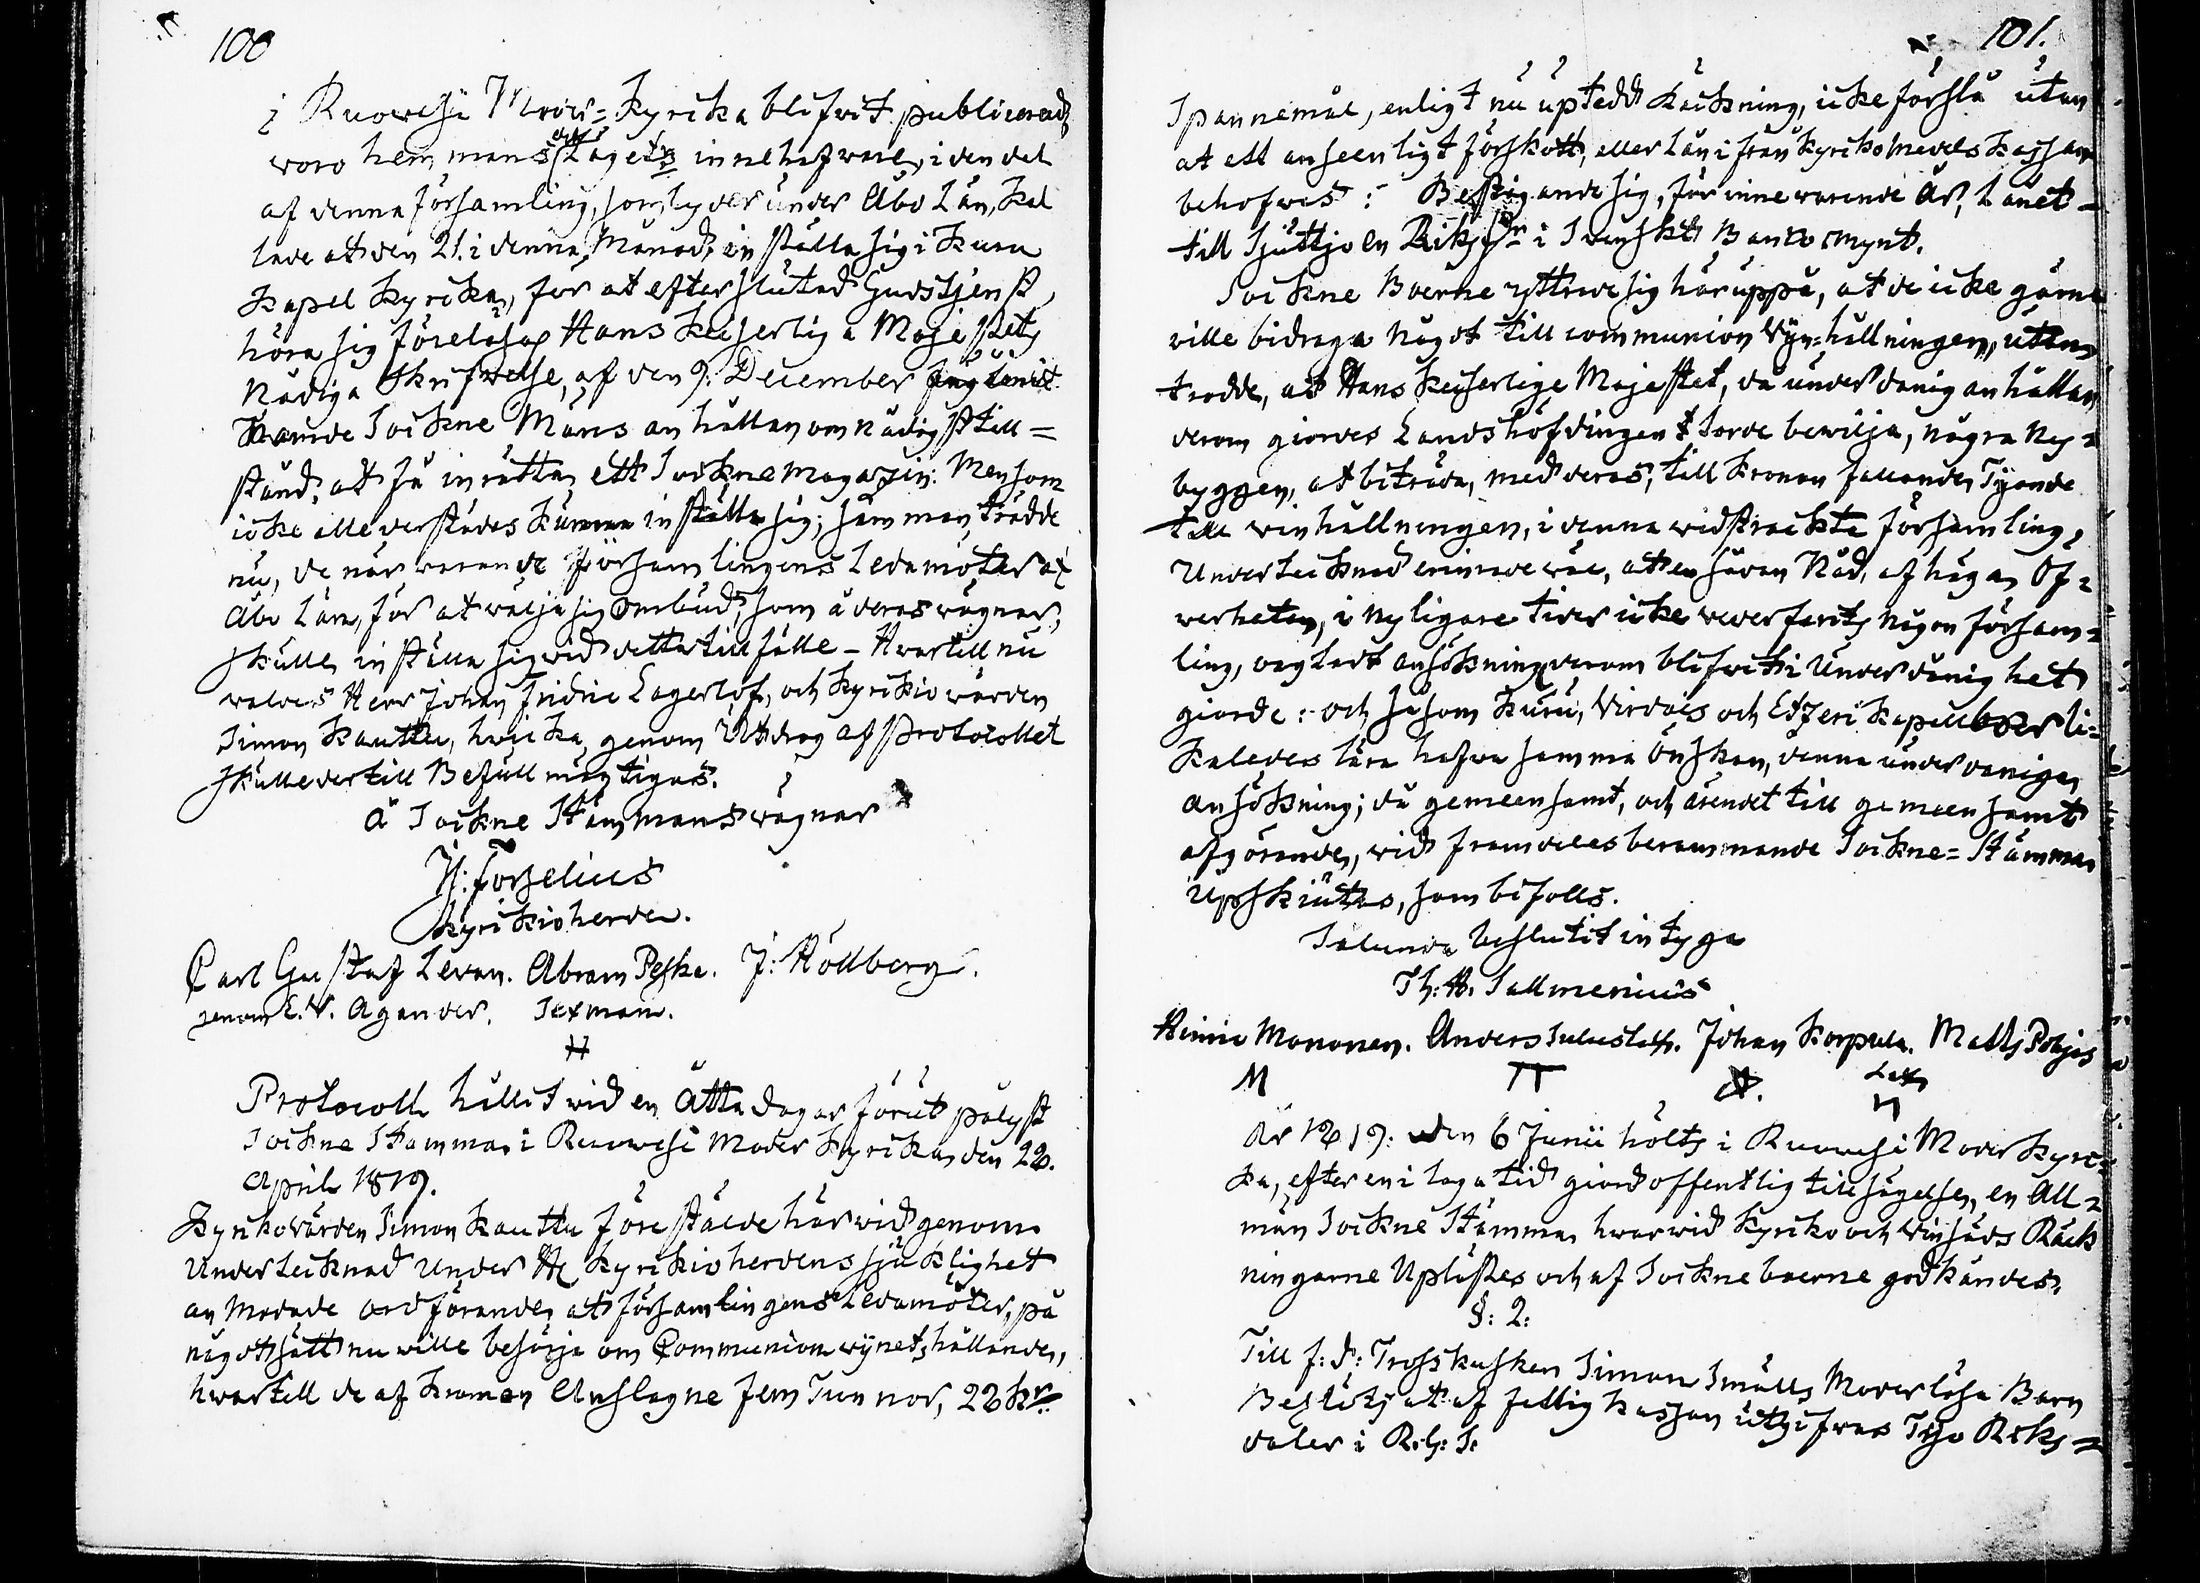 100
i Ruowesi Moder=Kyrcka blifwit publicerad,
woro hemmans och Lägenhets innehafware, i den del
af denna församling, som lyder under Åbo Län, kal
lade at den 21. i denna Månad, inställa sig i Kuru
Kapel Kyrcka, för at efter slutad Gudstjenst,
höra sig föreläsas Hans Keiserliga Majestäts
Nådiga Skrifwelse, af den 9. December angående
Sockne Mäns anhållan om nådigt till=
stånd, at få inrätta ett Sockne magasin: Men som
icke alle derstädes kunna inställa sig; samman trädde
nu, de närwarande Församlingens Ledamöter af
Åbo Län, för at wälja sig Ombud, som å deras wägnar,
skulle inställa sig wid detta tillfälle - Hwartill nu
waldes Herr Johan Fridric Lagerlöf, och Kyrckio wärden
Simon Kauttu, hwilka, genom Utdrag af Protocollet
skulle der till Befullmägtigas.
å Sockne Stämmans wägnar
H: Forselius
Kyrckioherde.
Carl Gustaf Levan. Abram Peska. J: Hällberg.
genom E. W. Agander. Sexman.
H
Protocoll hållit wid en Åtta dagar förut pålyst
Sockne Stämma i Ruowesi Moder Kyrcka, den 28.
April 1819.
Kyrkovärden Simon Kauttu föreställde härwid genom
Undertecknad under Hr Kyrckioherdens sjuklighet
anmodade ordförande, at församlingens Ledamöter, på
något sätt nu wille besörja om Communion wynets hållande,
hwartill de af Kronan Anslagne fem Tunnor, 22 Kr
101.
Spannemål, enligt nu uptedd Räckning, icke förslå utan
at ett anseenligt förskott, eller Lån ifrån Kyrko Medels Kassan
behöfwes: Bestigande sig, för innewarende År, Lånet
till Sjuttjo en Riksdr i Swenskt Banco mynt.
Sockne Boerne yttrade sig häruppå, at de icke gärna
ville bidraga något till communion Vyn=hållningen, utan
trodde, at Hans Keiserlige Majestet, då underdånig anhållan
derom giordes Landshöfdingen torde bewilja, några Ny=
byggen, at biträda, med deras, till Kronan fallande Tyonde
till winhållningen, i denna widsträckta församling,
Undertecknad erinrade wäl, at en sådan Nåd, af höga Öf=
werheten, i nyligare tider icke wederfarits någon försam=
ling, oagtadt ansökning derom blifwit i Underdånighet
giorde: och såsom Kuru, Virdois och Etzeri Kapellboer li=
kaledes lära hafwa samma Önskan, denna underdåniga
ansökning; då gemeensamt, och ärendet till gemeensamt
afgörande, wid framdeles berammande Sockne=Stämma
Upskiutes, som bifölls.
Sålunda beslutit intyga
Th: H. Sallmenius
Hinric Mononen. Anders . Johan Korpula. Matts Pohjas
Lax
M TT A. H
År 1819: den 6 Junii hölts i Ruowesi Moder Kyrc=
ka, efter en i laga tid giord offentlig tillsägelse, en All=
män Sockne Stämma, hwarwid Kyrcko och Winsäds Räck
ningarne Uplästes och af Sockne boerne godkändes.
§: 2:
Till f: d: Trosskusken Simon Smålls Moderlösa Barn
Beslöts at af Fattig Kassan utgifwas Tjo Riks=
daler i R:g: S: